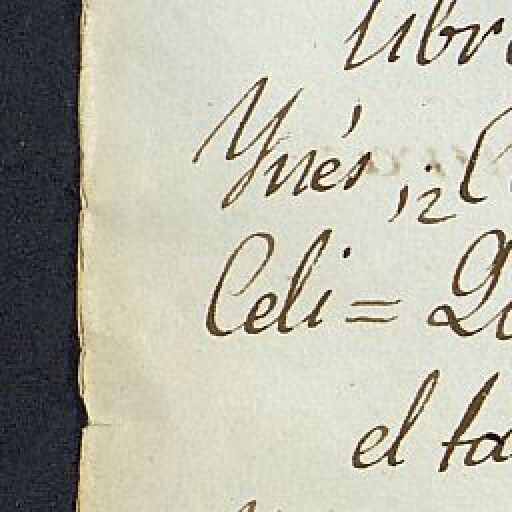 libr
Ynés, 12 C
Celi = D
el ta